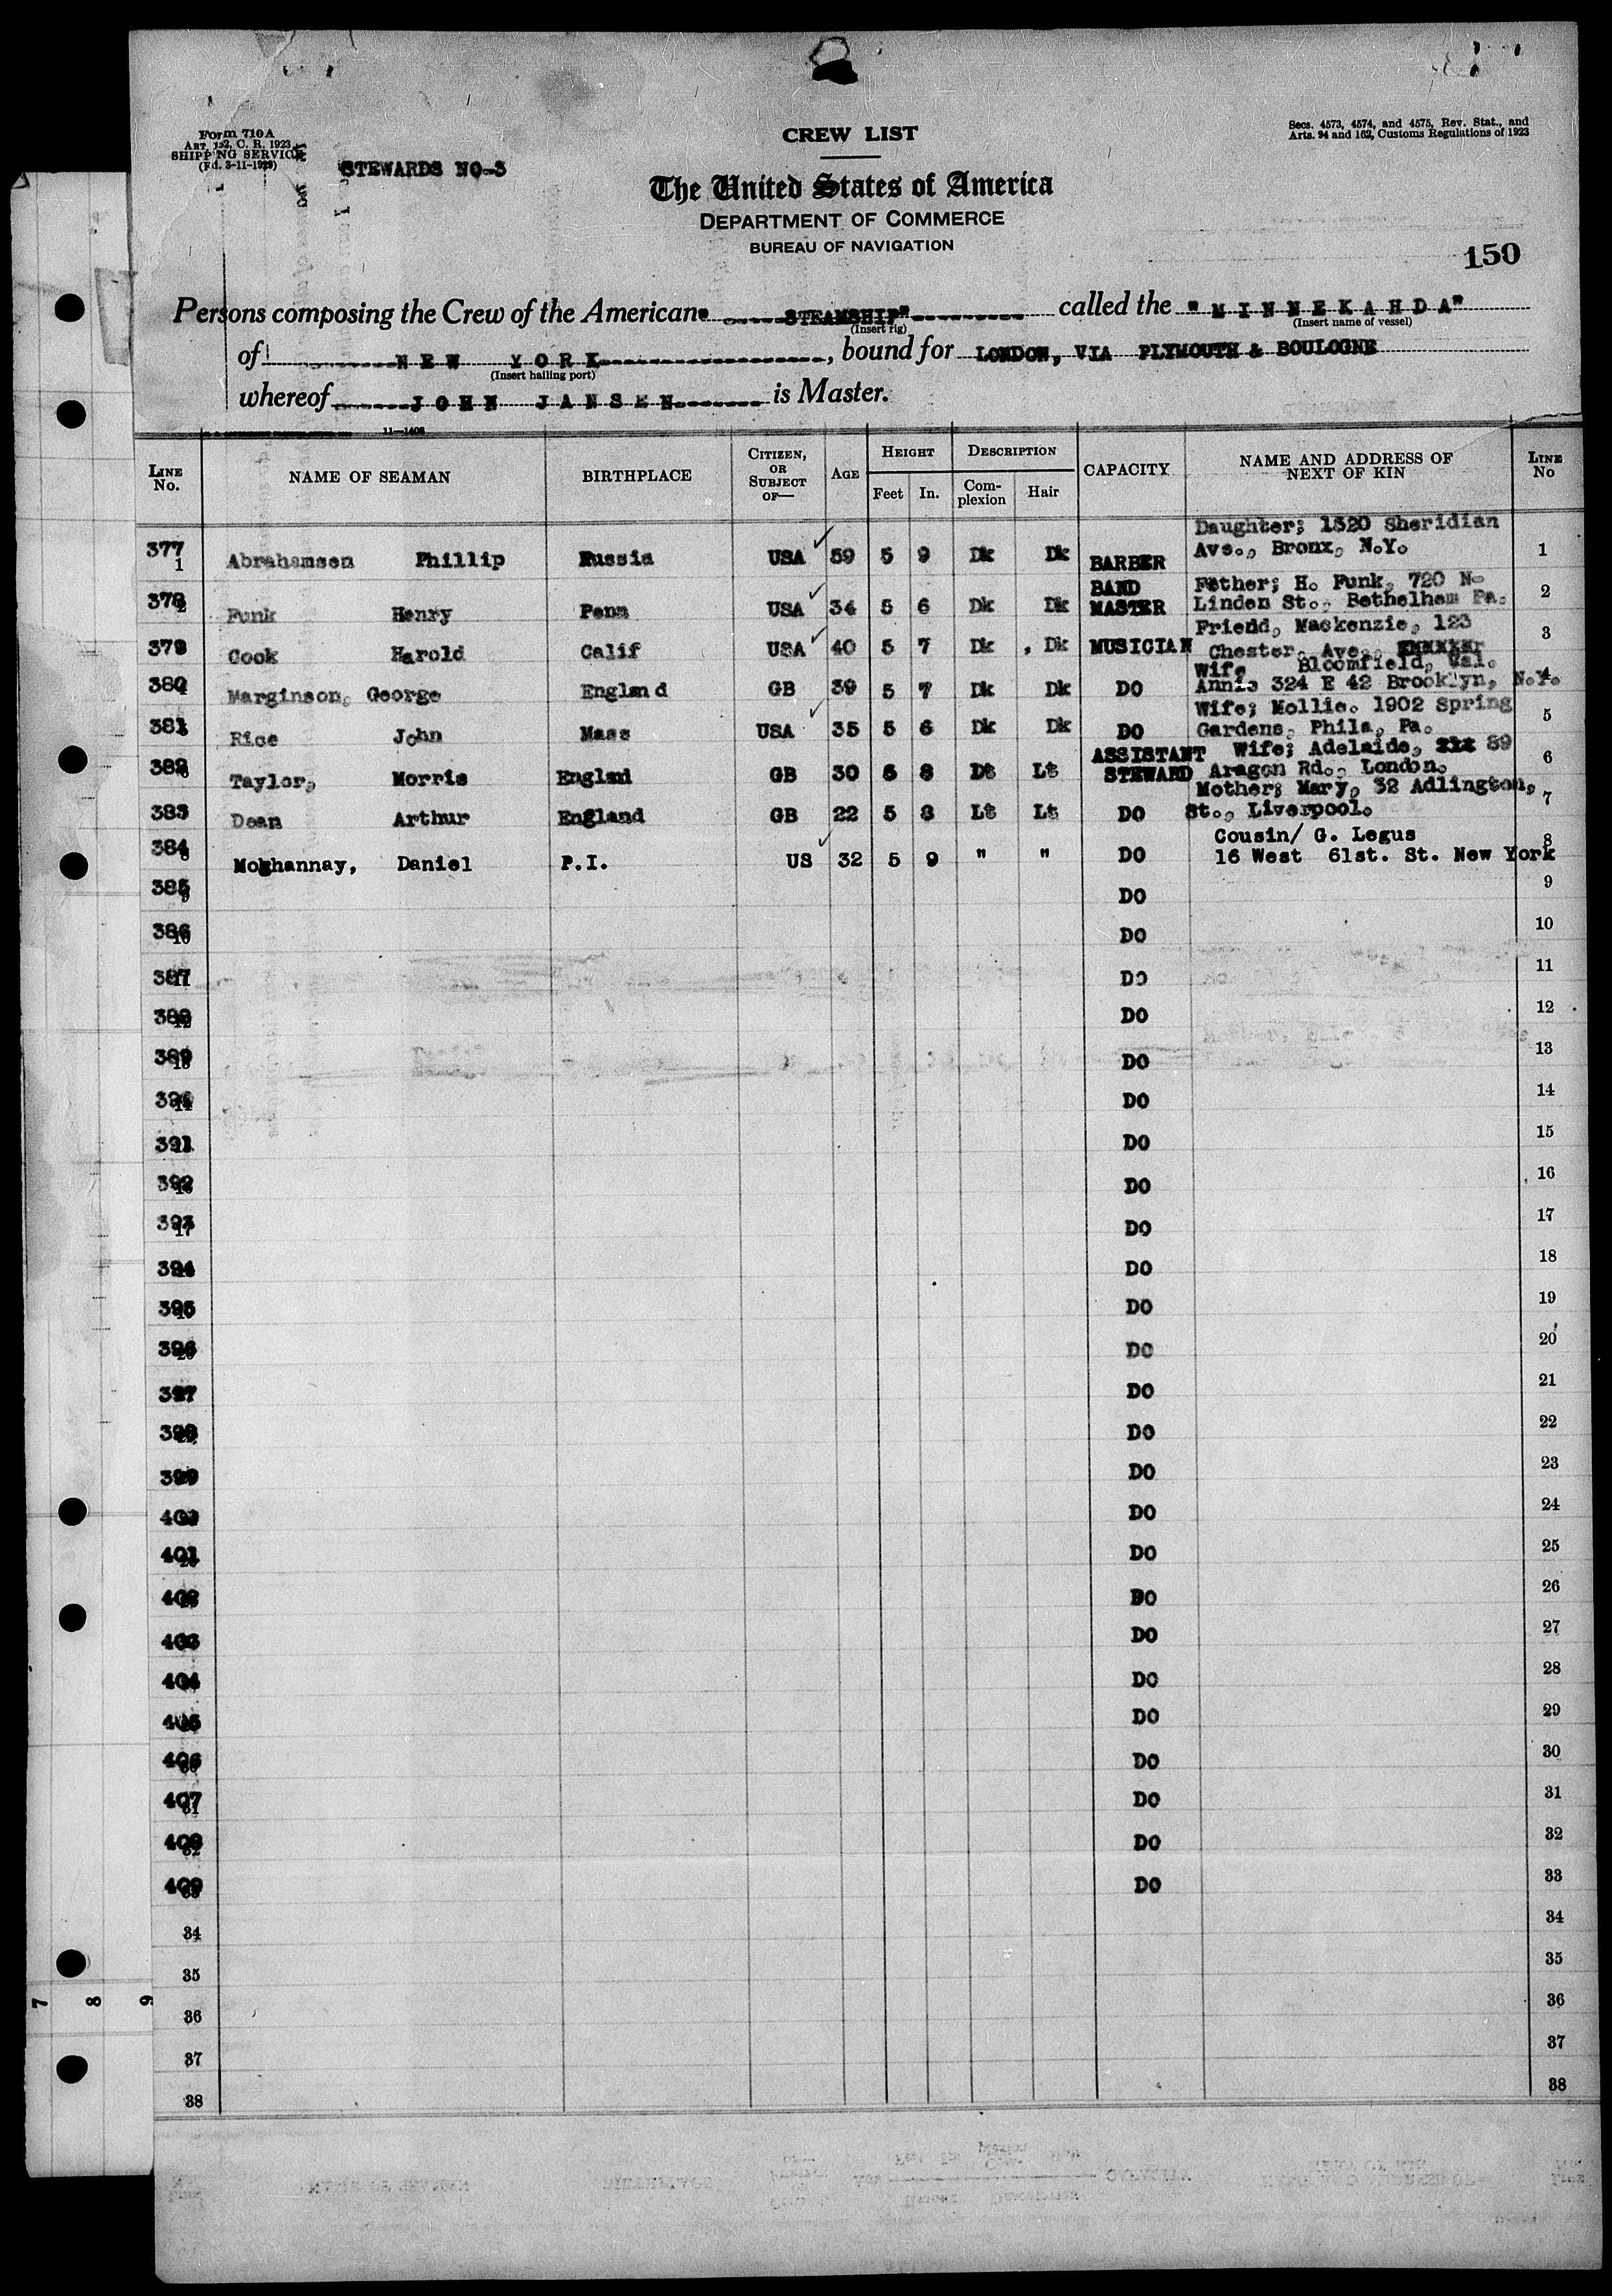 Form 710A
ART. 152, C. R. 1923
SHIPPING SERVICE
(Fd. 3-11-1929)
STEWARDS NO-3
CREW LIST
The United States of America
DEPARTMENT OF COMMERCE
BUREAU OF NAVIGATION
Secs. 4573, 4574, and 4575, Rev. Stat., and
Arts. 94 and 162, Customs Regulations of 1923
150
Persons composing the Crew of the American "STEAMSHIP" called the "MINNEKAHDA"
(Insert rig) (Insert name of vessel)
of NEW YORK, bound for LONDON, VIA PLYMOUTH & BOULOGNE
(Insert hailing port)
whereof JOHN JANSEN is Master.
11—1406
LINE No. NAME OF SEAMAN BIRTHPLACE CITIZEN, OR SUBJECT OF— AGE HEIGHT Feet In. DESCRIPTION Complexion Hair CAPACITY NAME AND ADDRESS OF NEXT OF KIN LINE No
Daughter; 1520 Sheridian
377 1 Abrahamsen Phillip Russia USA ✓ 59 5 9 Dk Dk BARBER Ave., Bronx, N.Y. 1
BAND Father; H. Funk, 720 N-
378 2 Funk Henry Penn USA ✓ 34 5 6 Dk Dk MASTER Linden St., Bethelhem Pa. 2
Friend, Mackenzie, 123
379 Cook Harold Calif USA ✓ 40 5 7 Dk Dk MUSICIAN Chester, Ave., 3
Wife Bloomfield, Cal.
380 Marginson, George England GB 39 5 7 Dk Dk DO Annie 324 E 42 Brooklyn, N.Y. 4
Wife; Mollie. 1902 Spring
381 Rice John Mass USA ✓ 35 5 6 Dk Dk DO Gardens, Phila, Pa. 5
ASSISTANT Wife; Adelaide, 89
382 Taylor, Morris England GB 30 5 8 Dk Lt STEWARD Aragon Rd., London. 6
Mother; Mary, 32 Adlington,
383 Dean Arthur England GB 22 5 8 Lt Lt DO St., Liverpool. 7
Cousin/ G. Legus
384 8 Daniel P.I. US ✓ 32 5 9 " " DO 16 West 61st. St. New York 8
385 9 DO 9
386 10 DO 10
387 11 DO 11
388 12 DO 12
389 13 DO 13
390 14 DO 14
391 DO 15
392 16 DO 16
393 17 DO 17
394 DO 18
395 19 DO 19
396 20 DO 20
397 DO 21
398 DO 22
399 DO 23
400 DO 24
401 DO 25
402 DO 26
403 DO 27
404 DO 28
405 DO 29
406 30 DO 30
407 31 DO 31
408 32 DO 32
409 33 DO 33
34 34
35 35
36 36
37 37
38 38
7 8 9